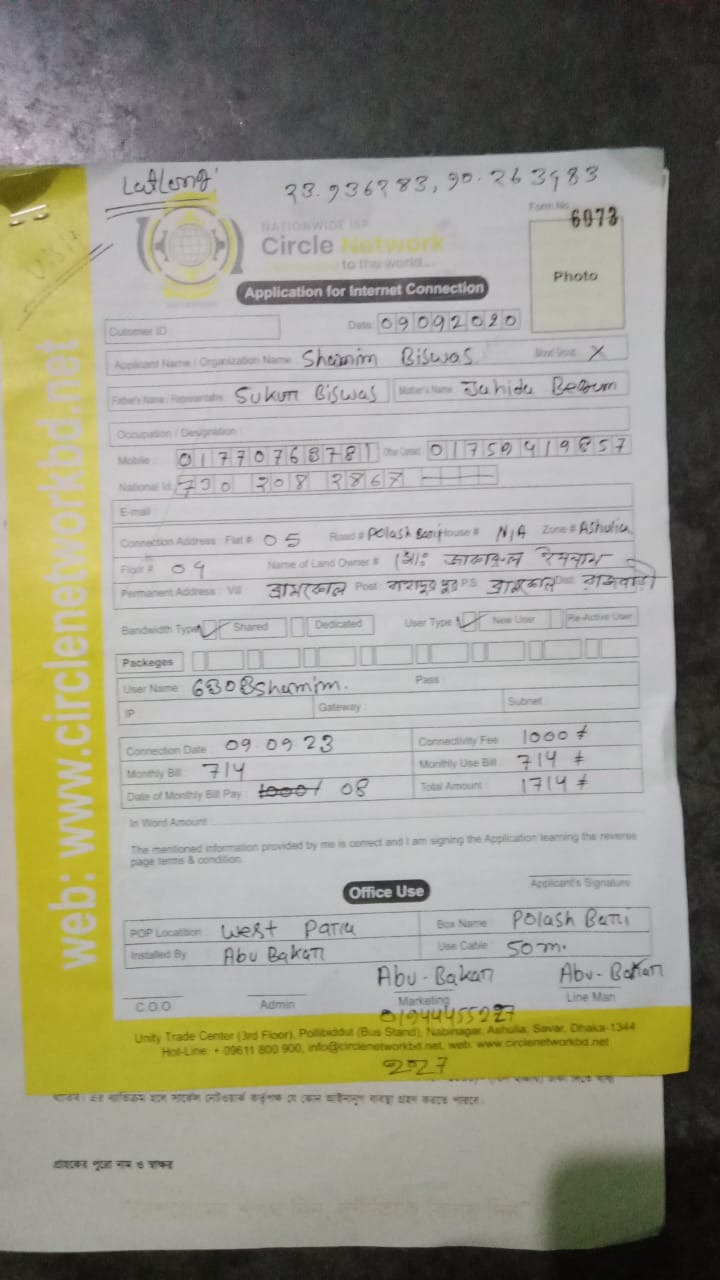 LatLong
23.936283, 90.263983
Form No
6073
NATIONWIDE ISP
Circle Network
to the world...
Photo
Application for Internet Connection
Cutomer ID
Date: 09092020
Applicant Name / Organization Name Shamim Biswas Blood Group: X
Father's Name / Representative Sukur Biswas Mother's Name Jahida Begum
Occupation / Designation :
Mobile : 01770768781 Other Contact 01759419857
National Id 730 208 2867
E-mail
Connection Address : Flat # 05 Road # Polash Bari House # N/A Zone # Ashulia
Floor # 04 Name of Land Owner #
Permanent Address : Vill : Post : P.S. Dist.
Bandwidth Type Shared Dedicated User Type New User Re-Active User
Packeges
User Name 6308shamim. Pass :
IP Gateway : Subnet :
Connection Date : 09.09.23 Connectivity Fee 1000
Monthly Bill : 714 Monthly Use Bill : 714
Date of Monthly Bill Pay : 1000/ 08 Total Amount : 1714
In Word Amount :
The mentioned information provided by me is correct and I am signing the Application learning the reverse
page terms & condition.
Applicant's Signature
Office Use
POP Localition : West Para Box Name : Polash Bari
Installed By Abu Bakar Use Cable : 50m.
Abu-Bakar Abu-Bakar
C.O.O Admin Marketing Line Man
01944455227
Unity Trade Center (3rd Floor), Pollibiddut (Bus Stand), Nabinagar, Ashulia, Savar, Dhaka-1344
Hot-Line : + 09611 800 900, info@circlenetworkbd.net, web: www.circlenetworkbd.net
2027
web: www.circlenetworkbd.net
গ্রাহকের পুরো নাম ও স্বাক্ষর